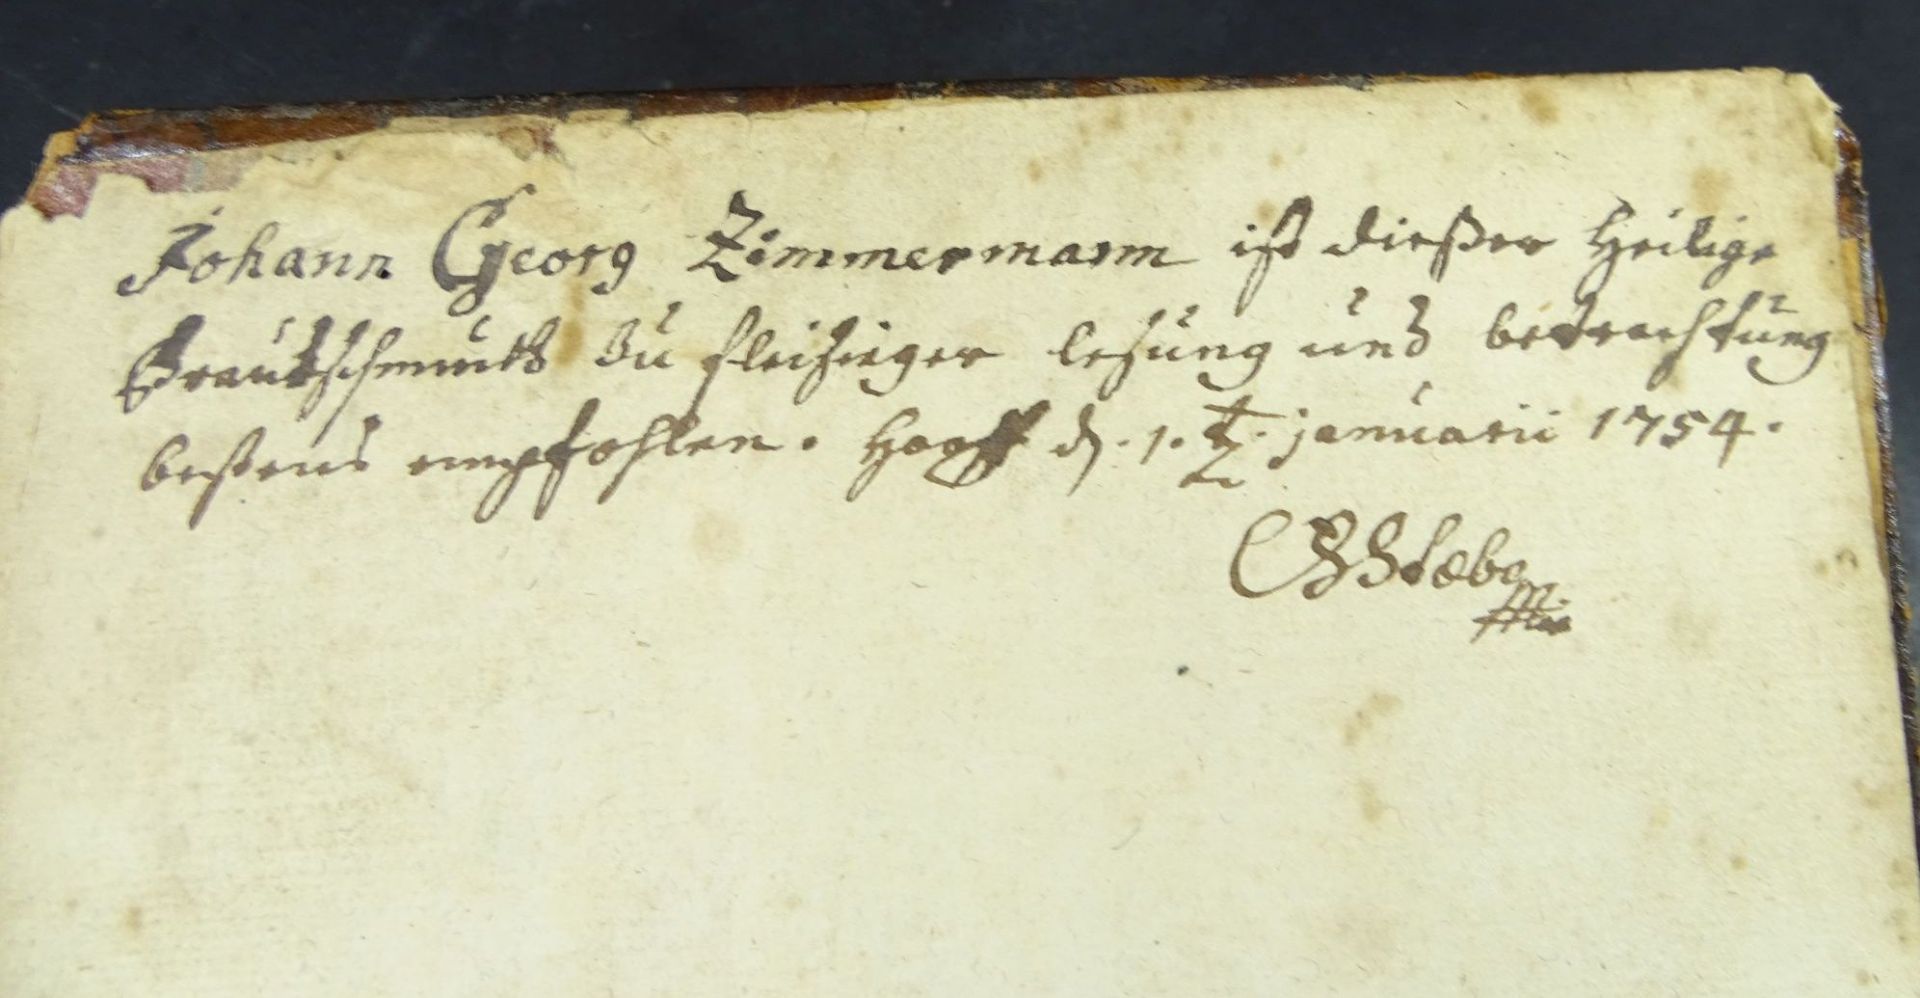 Johann Georg Zimmermann ist dießer Heilige
Brautschmuck zu fleisieger lesung und betrachtung
bestens empfohlen. Hoof d. 1. t. januarii 1754.